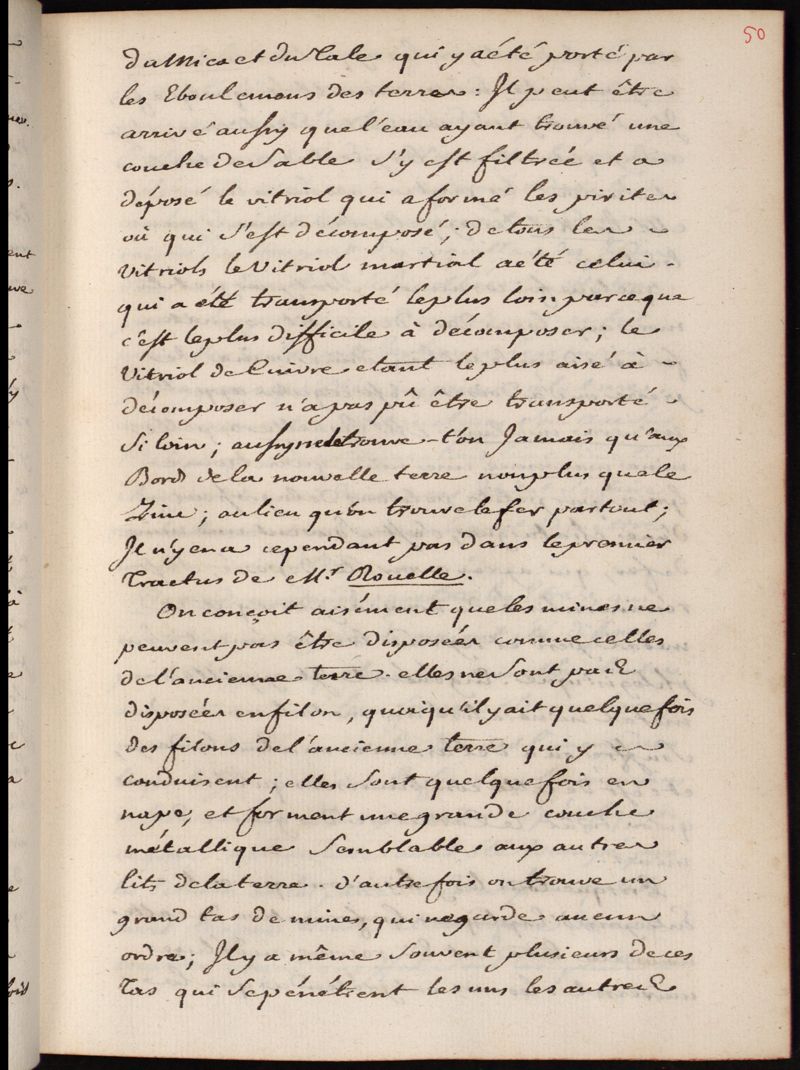 50
du Mica et du Talc qui y a été porté par
les Eboulemens des terres : Il peut être
arrivé aussy que l'eau ayant trouvé une
couche de Sable s'y est filtrée et a
déposé le vitriol qui a formé les pirites
où qui s'est décomposé ; de tous les
vitriols le Vitriol martial a été celui
qui a été transporté le plus loin parce que
c'est le plus difficile à décomposer ; le
Vitriol de Cuivre etant le plus aisé à
décomposer n'a pas pû être transporté
si loin ; aussy ne le trouve-t'on Jamais qu'aux
Bord de la nouvelle terre non plus que le
Zinc ; au lieu qu'on trouve le fer partout ;
Il n'y en a cependant pas dans le premier
Tractus de M.r Rouelle.
On conçoit aisément que les mines ne
peuvent pas être disposées comme celles
de l'ancienne terre. elles ne sont pas
disposées en filon, quoiqu'il y ait quelquefois
des filons de l'ancienne terre qui y
conduisent ; elles sont quelquefois en
nape, et forment une grande couche
métallique semblable aux autres
lits de la terre. d'autrefois on trouve un
grand tas de mines, qui ne garde aucun
ordre ; Il y a même souvent plusieurs de ces
Tas qui se pénétrent les uns les autres